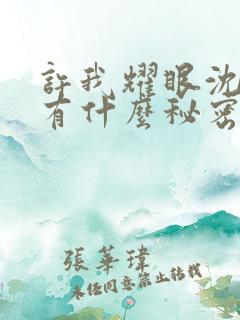 許我耀眼沈
有什麼秘密
張華瑋
未經同意禁止轉載